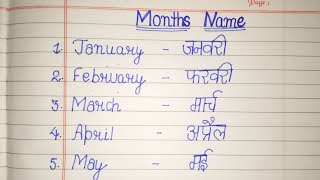 Page:
Months Name
1. January - जनवरी
2. February - फरवरी
3. March - मार्च
4. April - अप्रैल
5. May - मई